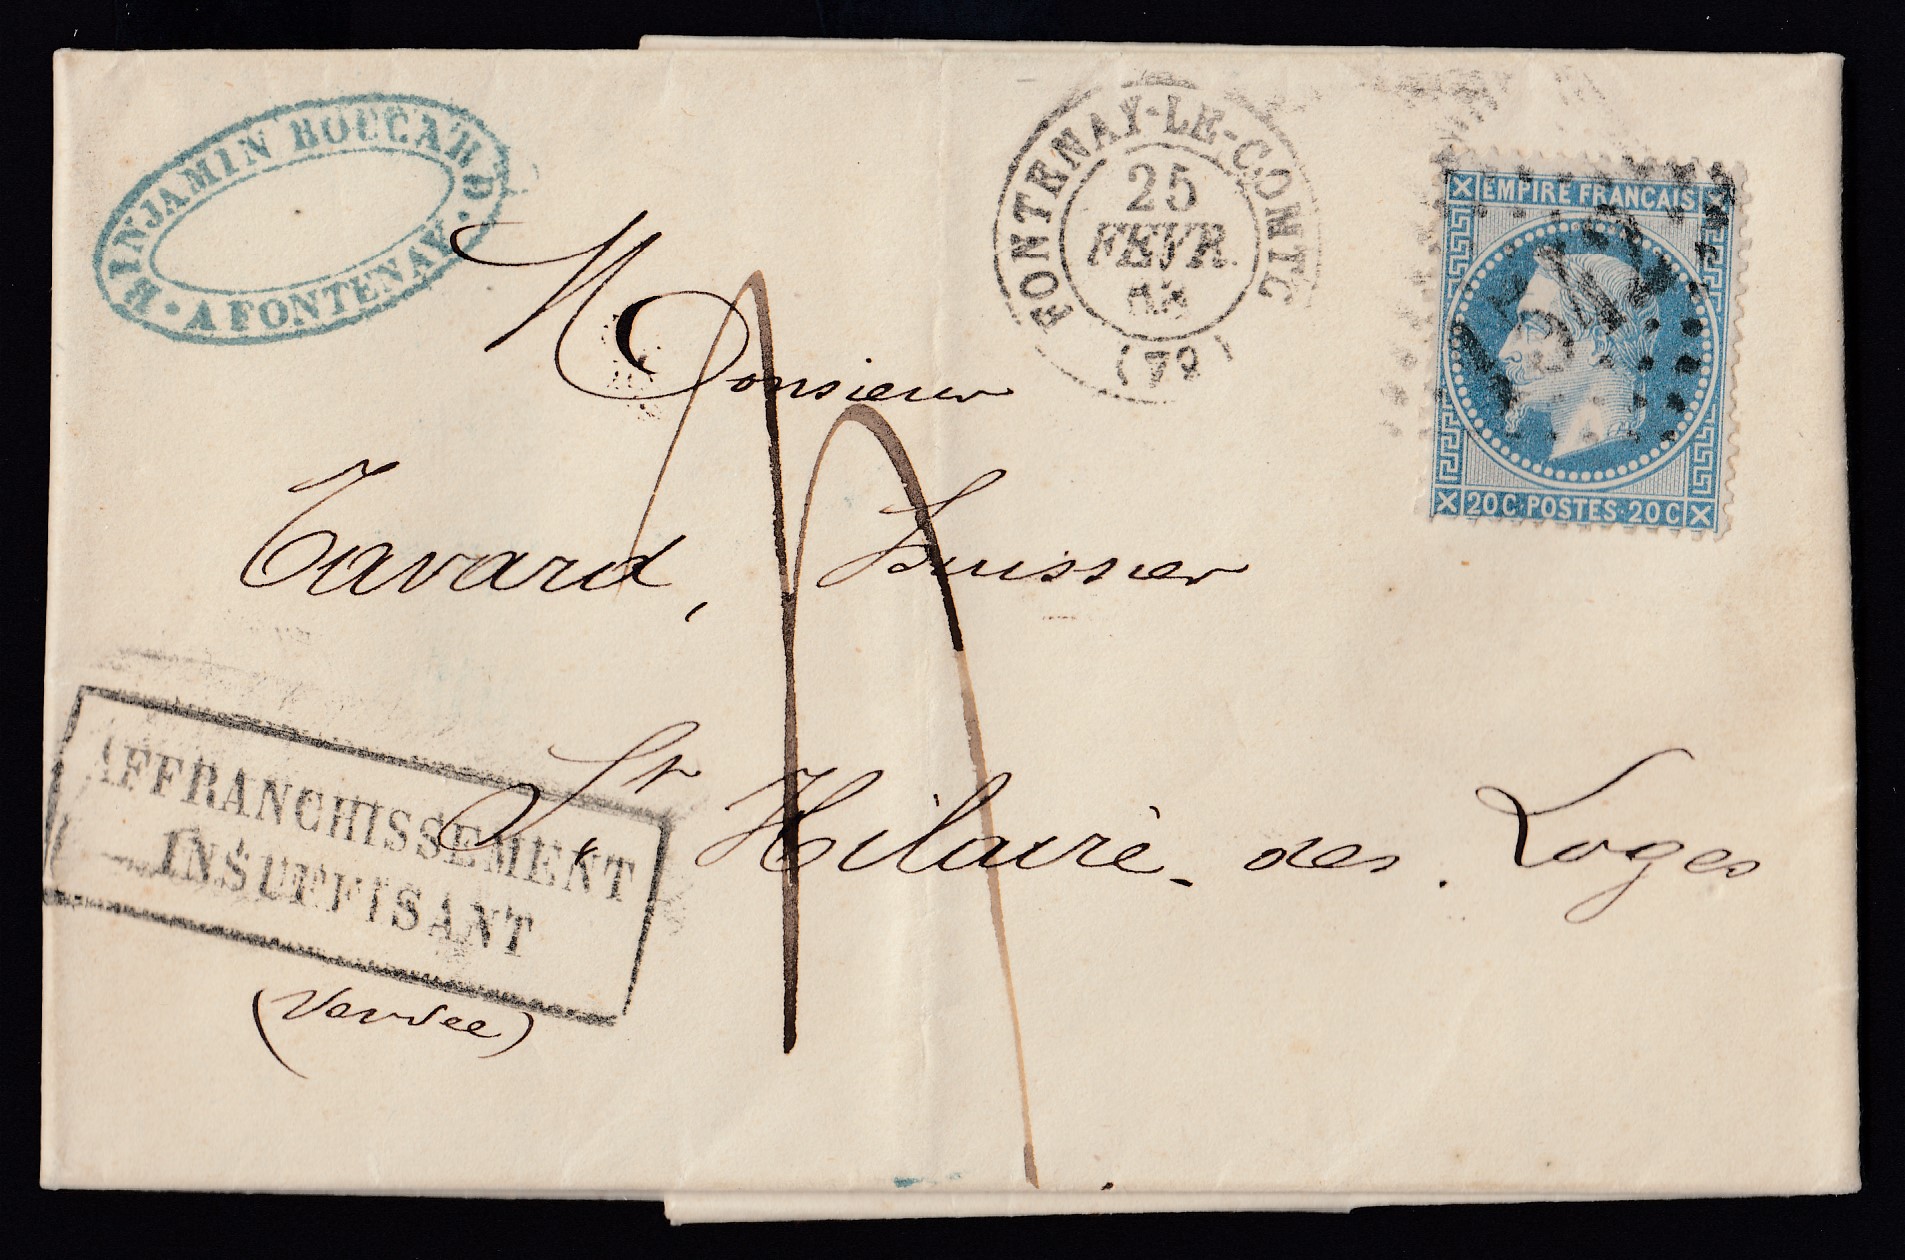 BINJAMIN BOUCARD
A FONTENAY
FONTENAY-LE-COMTE
25
FEVR.
(79)
EMPIRE FRANCAIS
1542
20C POSTES 20C
Monsieur
Tavard, huissier
St Hilaire des Loges
AFFRANCHISSEMENT
INSUFFISANT
(Vendee)